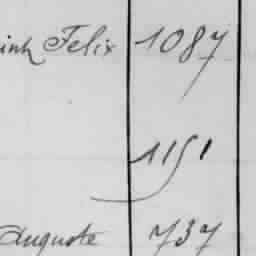 Felix 1087
1151
Auguste 737